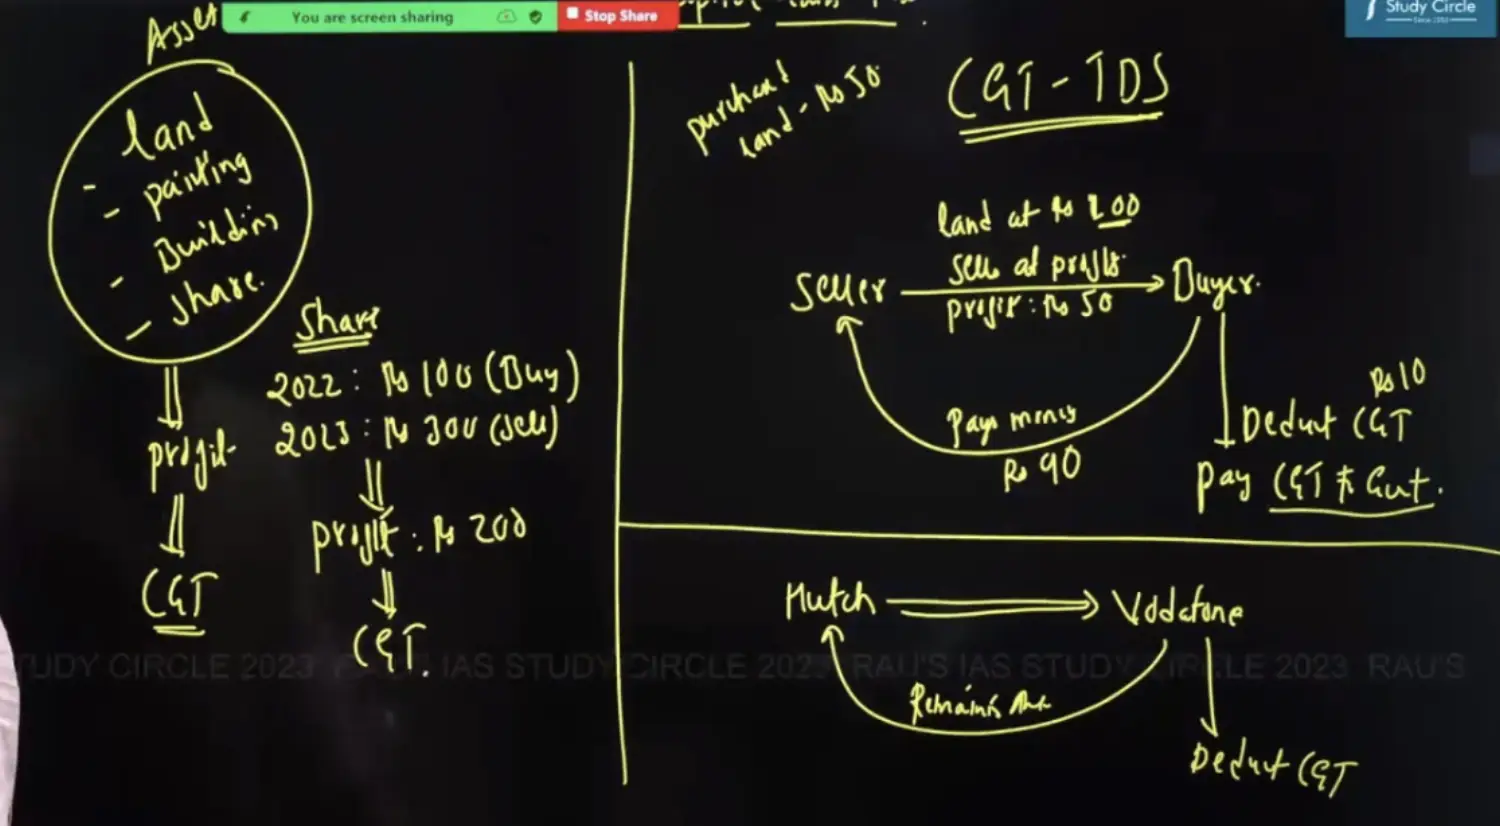 You are screen sharing
Stop Share
Study Circle
Since 1953
Asset
land
- painting
- Building
- share.
profit
CGT
Share
2022 : Rs 100 (Buy)
2023 : Rs 300 (Sell)
profit : Rs 200
CGT.
purchased
land - Rs 50
CGT - TDS
land at Rs 100
Sells at profit
Seller
Buyer.
profit : Rs 50
Pays money
Rs 90
Rs 10
Deduct CGT
Pay CGT to Govt.
Hutch
Vodafone
Remaining Amt
Deduct CGT
STUDY CIRCLE 2023 RAU'S IAS STUDY CIRCLE 2023 RAU'S IAS STUDY CIRCLE 2023 RAU'S